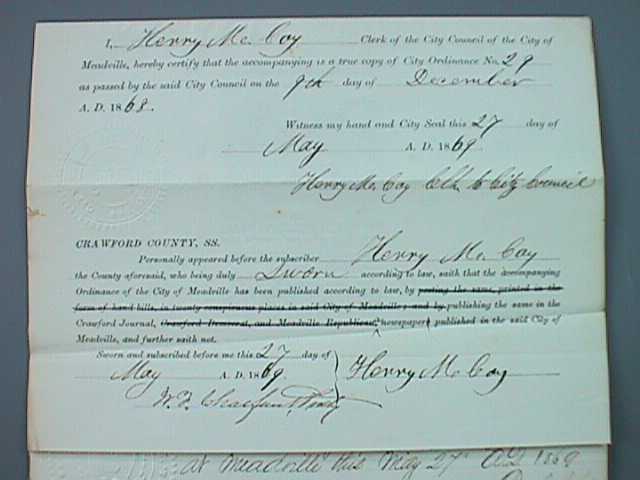 I, Henry Mc Coy Clerk of the City Council of the City of
Meadville, hereby certify that the accompanying is a true copy of City Ordinance No. 29
as passed by the said City Council on the 9th day of December
A. D. 1868.
Witness my hand and City Seal this 27 day of
May A. D. 1869.
Henry Mc Coy Clk to City Council
CRAWFORD COUNTY, SS.
Personally appeared before the subscriber Henry Mc Coy
the County aforesaid, who being duly Sworn according to law, saith that the accompanying
Ordinance of the City of Meadville has been published according to law, by posting the same, printed in the
form of hand bills, in twenty conspicuous places in said City of Meadville; and by publishing the same in the
Crawford Journal, Crawford Democrat, and Meadville Republican, newspapers published in the said City of
Meadville, and further saith not.
Sworn and subscribed before me this 27 day of
May A. D. 1869 Henry Mc Coy
W. F.
at Meadville this May 27th AD 1869